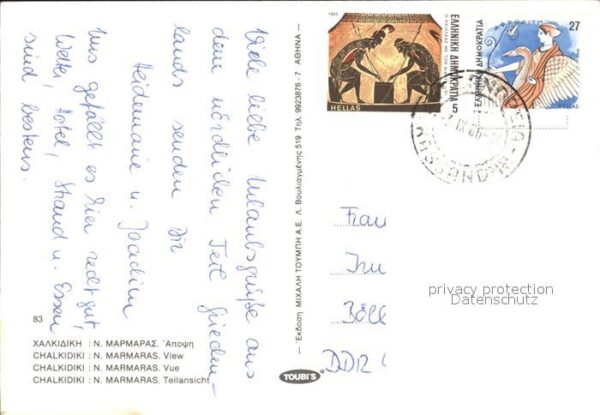 Viele liebe Urlaubsgrüße aus
dem nördlichen Teil Griechen-
lands senden Dir
Heidemarie u. Joachim
Uns gefällt es hier recht gut,
Wetter, Hotel, Strand u. Essen
sind bestens.
83
ΧΑΛΚΙΔΙΚΗ : Ν. ΜΑΡΜΑΡΑΣ. Άποψη
CHALKIDIKI : N. MARMARAS. View
CHALKIDIKI : N. MARMARAS. Vue
CHALKIDIKI : N. MARMARAS. Teilansicht
TOUBI'S
Έκδοση ΜΙΧΑΛΗ ΤΟΥΜΠΗ Α.Ε. Λ. Βουλιαγμένης 519 Τηλ. 9923876 - 7 ΑΘΗΝΑ
1983
HELLAS
ΕΛΛΗΝΙΚΗ ΔΗΜΟΚΡΑΤΙΑ 5
ΑΦΡΟΔΙΤΗ
27
ΕΛΛΗΝΙΚΗ ΔΗΜΟΚΡΑΤΙΑ
HELLAS
Frau
DDR
privacy protection
Datenschutz